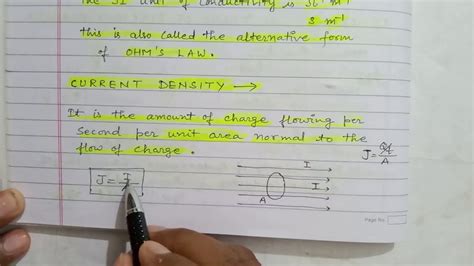 the SI unit of conductivity is
S m⁻¹
this is also called the alternative form
of OHM'S LAW.
CURRENT DENSITY →
It is the amount of charge flowing per
second per unit area normal to the
flow of charge.
J = Q/t / A
J = I
I
I
A
Page No.